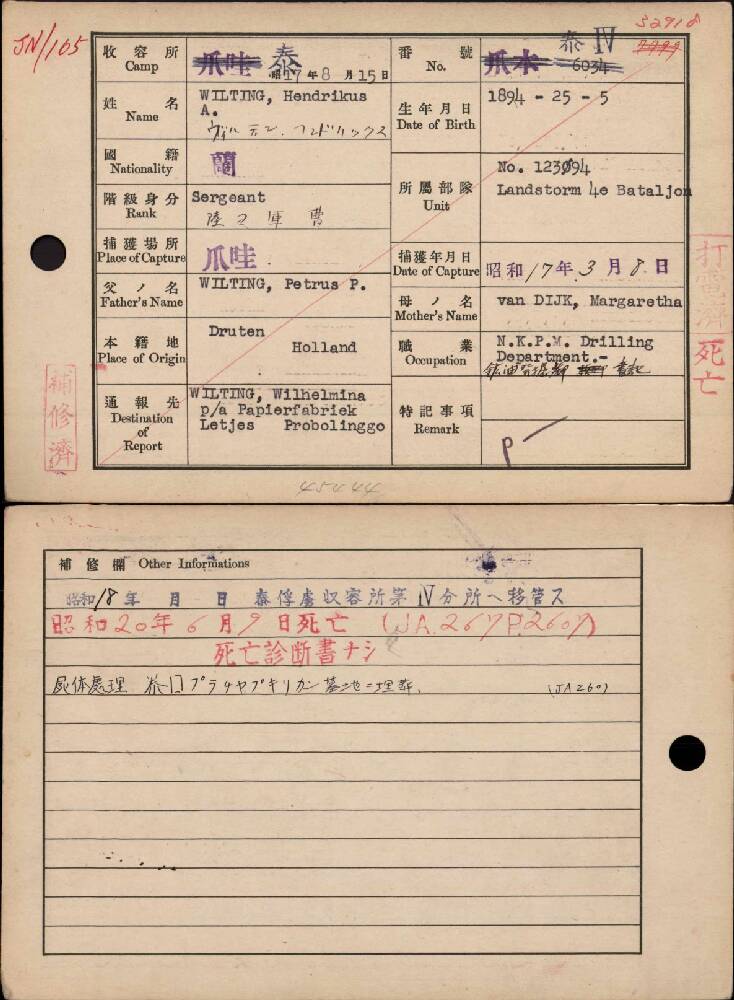 JN/165
52918
收容所 Camp 爪哇 泰 昭17年8月15日
番號 No. 爪本 6034 泰 IV
姓名 Name WILTING, Hendrikus
A.
生年月日 Date of Birth 1894 - 25 - 5
國籍 Nationality 蘭
階級身分 Rank Sergeant
陸 軍曹
所屬部隊 Unit No. 123094
Landstorm 4e Bataljon
捕獲場所 Place of Capture 爪哇
捕獲年月日 Date of Capture 昭和17年3月8日
父ノ名 Father's Name WILTING, Petrus P.
母ノ名 Mother's Name van DIJK, Margaretha
本籍地 Place of Origin Druten
Holland
職業 Occupation N.K.P.M. Drilling
Department.-
書記
通報先 Destination of Report WILTING, Wilhelmina
p/a Papierfabriek
Letjes Probolinggo
特記事項 Remark
P
打電濟
死亡
補修濟
45244
補修欄 Other Informations
昭和18年 月 日 泰俘虜収容所第IV分所ヘ移管ス
昭和20年6月9日死亡 (JA.267P.2607)
死亡診断書ナシ
屍体處理 泰国プラチヤブキリカン墓地ニ埋葬. (JA260)